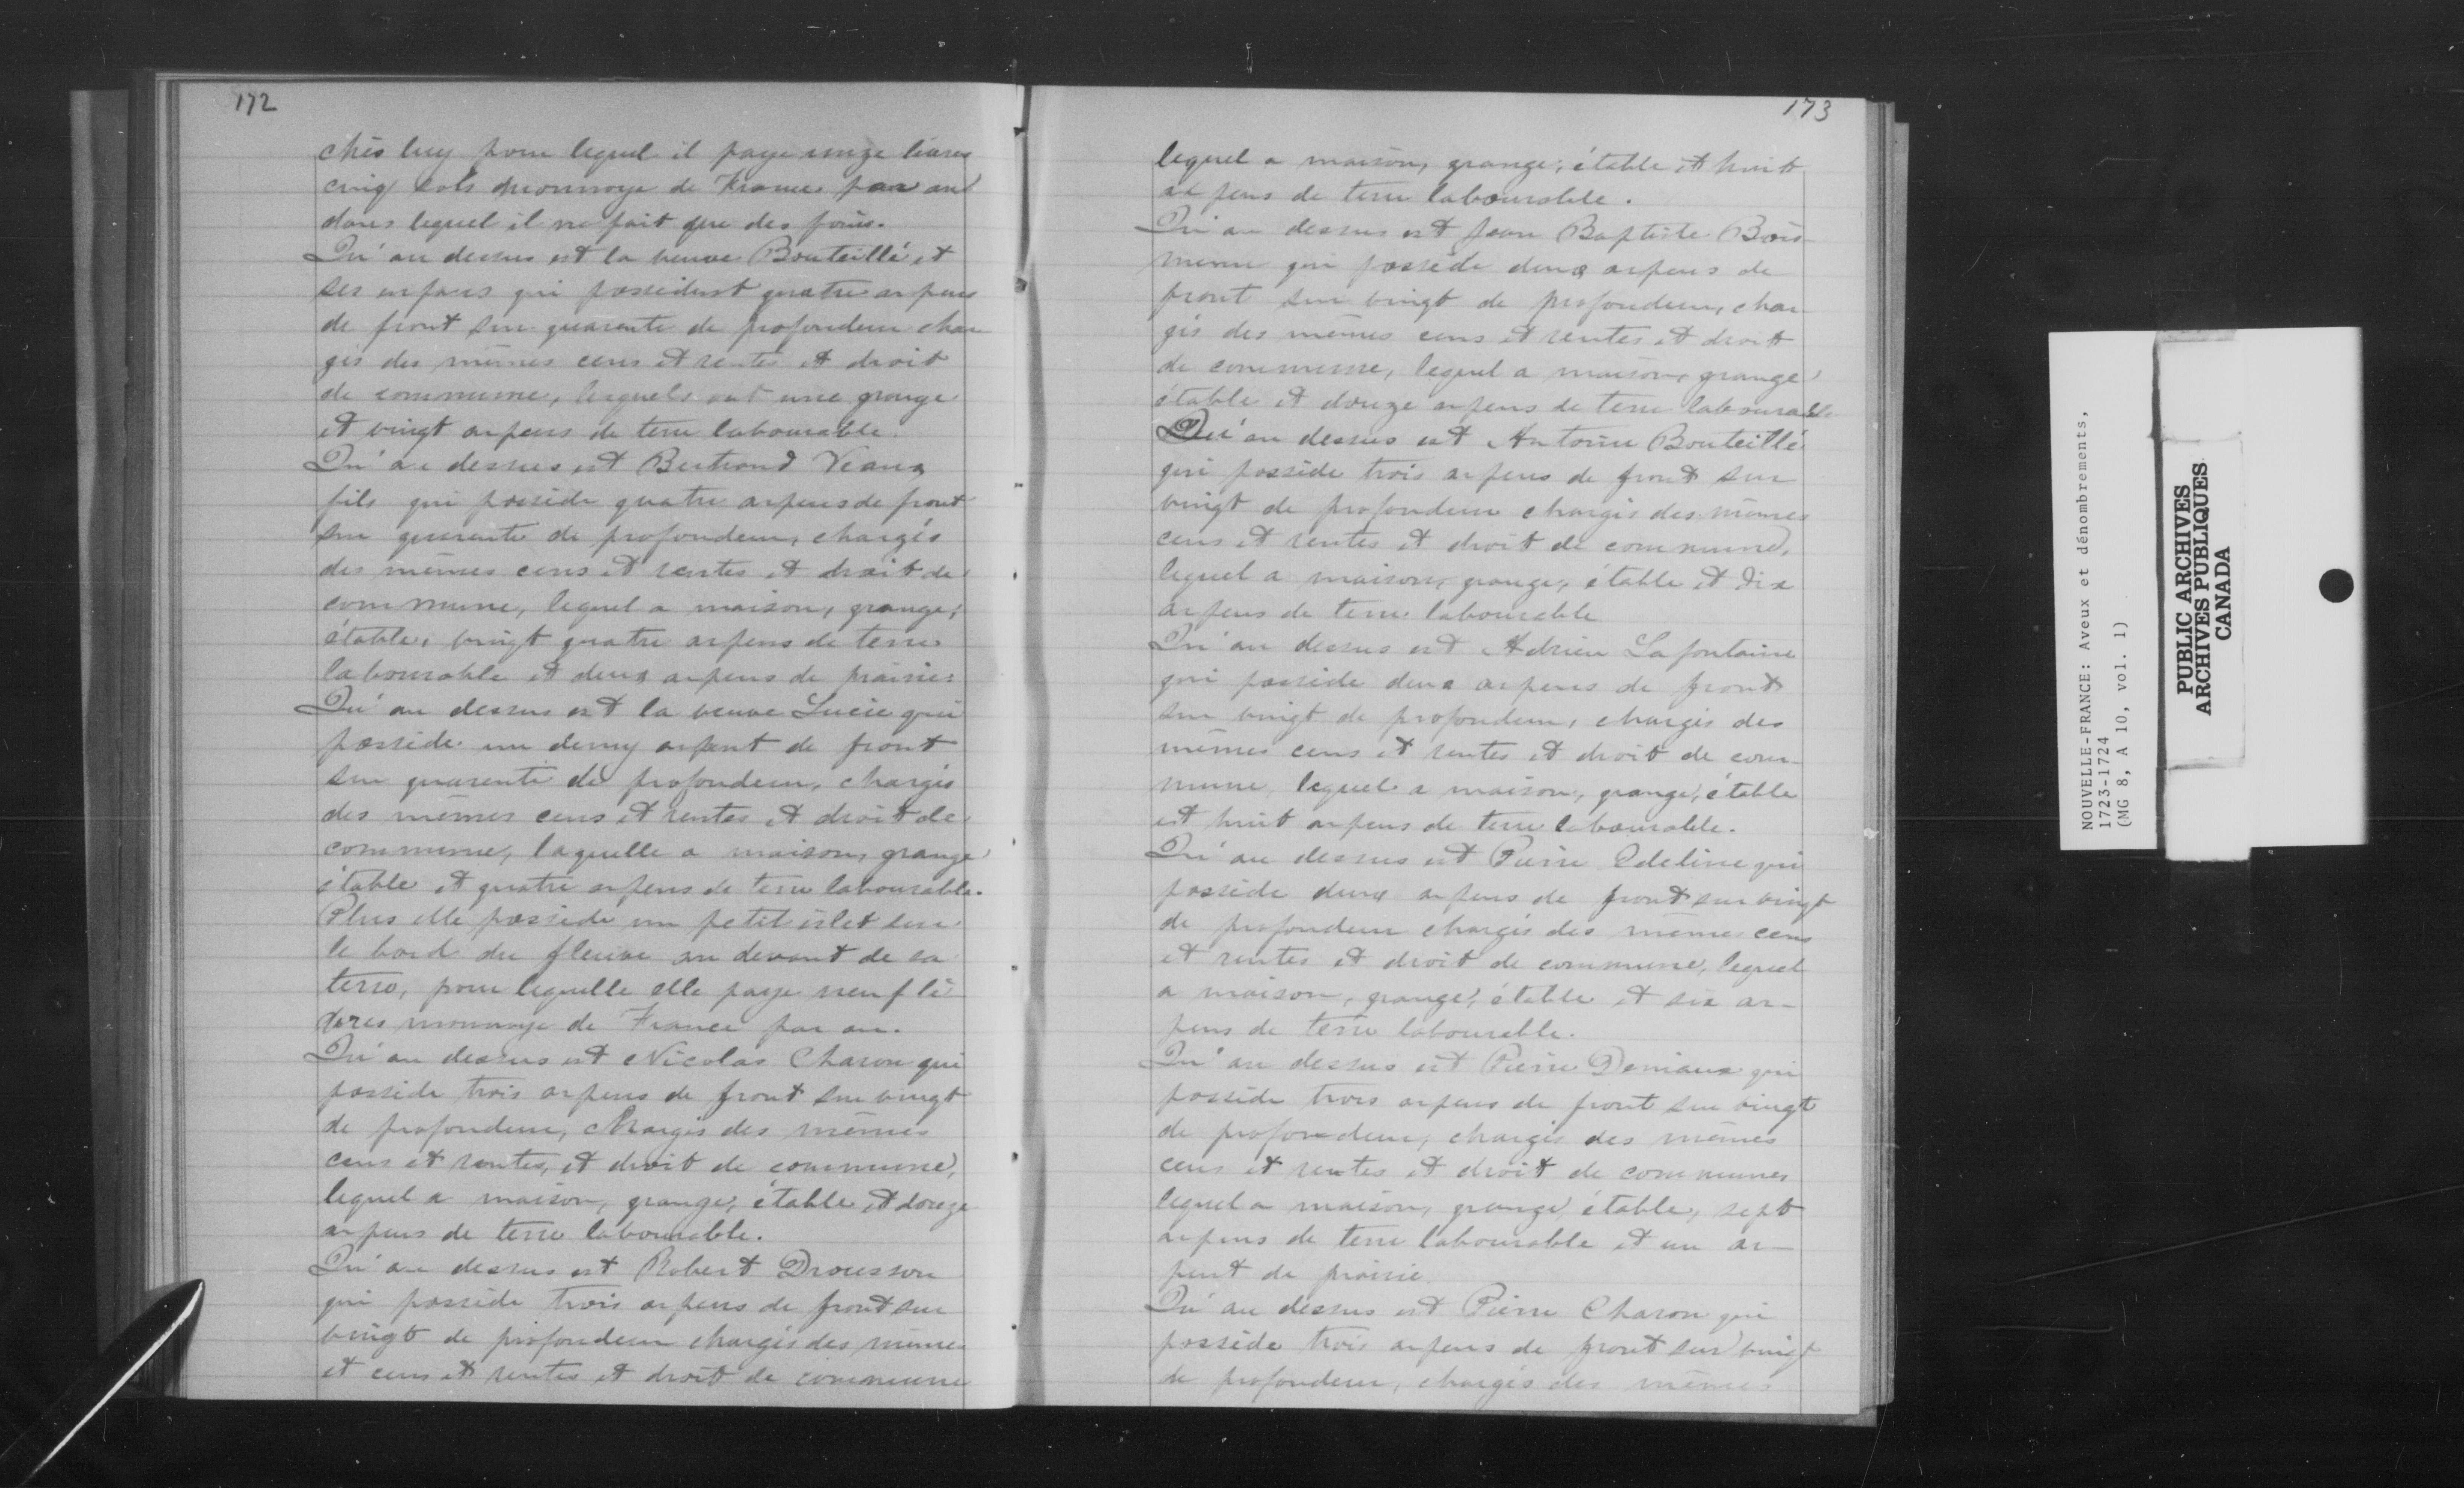 172
chés luy pour lequel il paye onze livres
cinq sols monnoye de France par an
dans lequel il ne fait que des foins.
Qu'au dessus est la veuve Bouteillé et
ses enfans qui possedent quatre arpens
de front sur quarente de profondeur char
gés des mêmes cens et rentes et droit
de commune, lesquels ont une grange
et vingt arpens de terre labourable.
Qu'au dessus est Bertrand Viaux
fils qui possède quatre arpens de front
sur quarente de profondeur, chargés
des mêmes cens et rentes et droit de
commune, lequel a maison, grange,
étable, vingt quatre arpens de terre
labourable et deux arpens de prairie:
Qu'au dessus est la veuve Lucie qui
possède un demy arpent de front
sur quarente de profondeur, chargés
des mêmes cens et rentes et droit de
commune, laquelle a maison, grange
étable et quatre arpens de terre labourable.
Plus elle possède un petit islet sur
le bord du fleuve au devant de sa
terre, pour lequelle elle paye neuf li
vres monnoye de France par an.
Qu'au dessus est Nicolas Charon qui
possède trois arpens de front sur vingt
de profondeur, chargés des mêmes
cens et rentes, et droit de commune,
lequel a maison, grange, étable et douze
arpens de terre labourable.
Qu'au dessus est Robert Drousson
qui possède trois arpens de front sur
vingt de profondeur chargés des mêmes
et cens et rentes et droit de commune
173
lequel a maison, grange, étable et huit
arpens de terre labourable.
Qu'au dessus est Jean Baptiste Bois
menu qui possède deux arpens de
front sur vingt de profondeur, char
gés des mêmes cens et rentes et droit
de commune, lequel a maison, grange
étable et douze arpens de terre labourable
Qu'au dessus est Antoine Bouteillé
qui possède trois arpens de front sur
vingt de profondeur chargés des mêmes
cens et rentes et droit de commune,
lequel a maison, grange, étable et dix
arpens de terre labourable
Qu'au dessus est Adrien Lafontaine
qui possède deux arpens de front
sur vingt de profondeur, chargés des
mêmes cens et rentes et droit de com-
mune, lequel a maison, grange, étable
et huit arpens de terre labourable.
Qu'au dessus est Pierre Edeline qui
possède deux arpens de front sur vingt
de profondeur chargés des mêmes cens
et rentes et droit de commune, lequel
a maison, grange, étable et six ar-
pens de terre labourable.
Qu'au dessus est Pierre Deniaux qui
possède trois arpens de front sur vingt
de profondeur, chargés des mêmes
cens et rentes et droit de communes
lequel a maison, grange, étable, sept
arpens de terre labourable et un ar-
pent de prairie.
Qu'au dessus est Pierre Charon qui
possède trois arpens de front sur vingt
de profondeur, chargés des mêmes
NOUVELLE-FRANCE: Aveux et dénombrements,
1723-1724
(MG 8, A 10, vol. 1)
PUBLIC ARCHIVES
ARCHIVES PUBLIQUES
CANADA